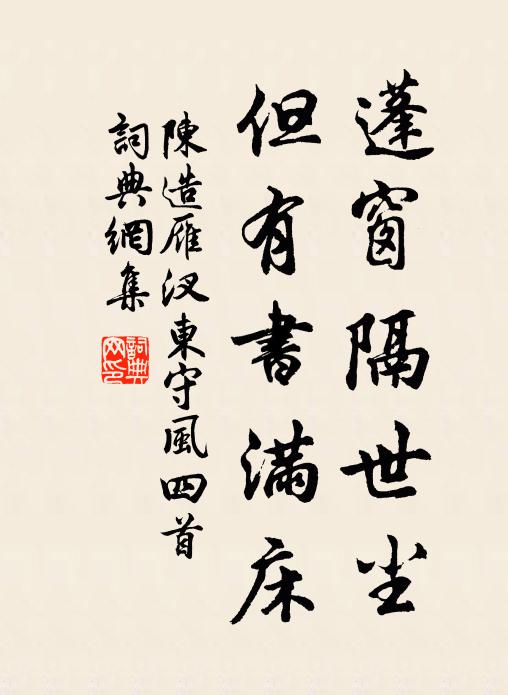 蓬窗隔世尘
但有書滿床
陳造雁汊東守風四首
詞典網集
詞典網印